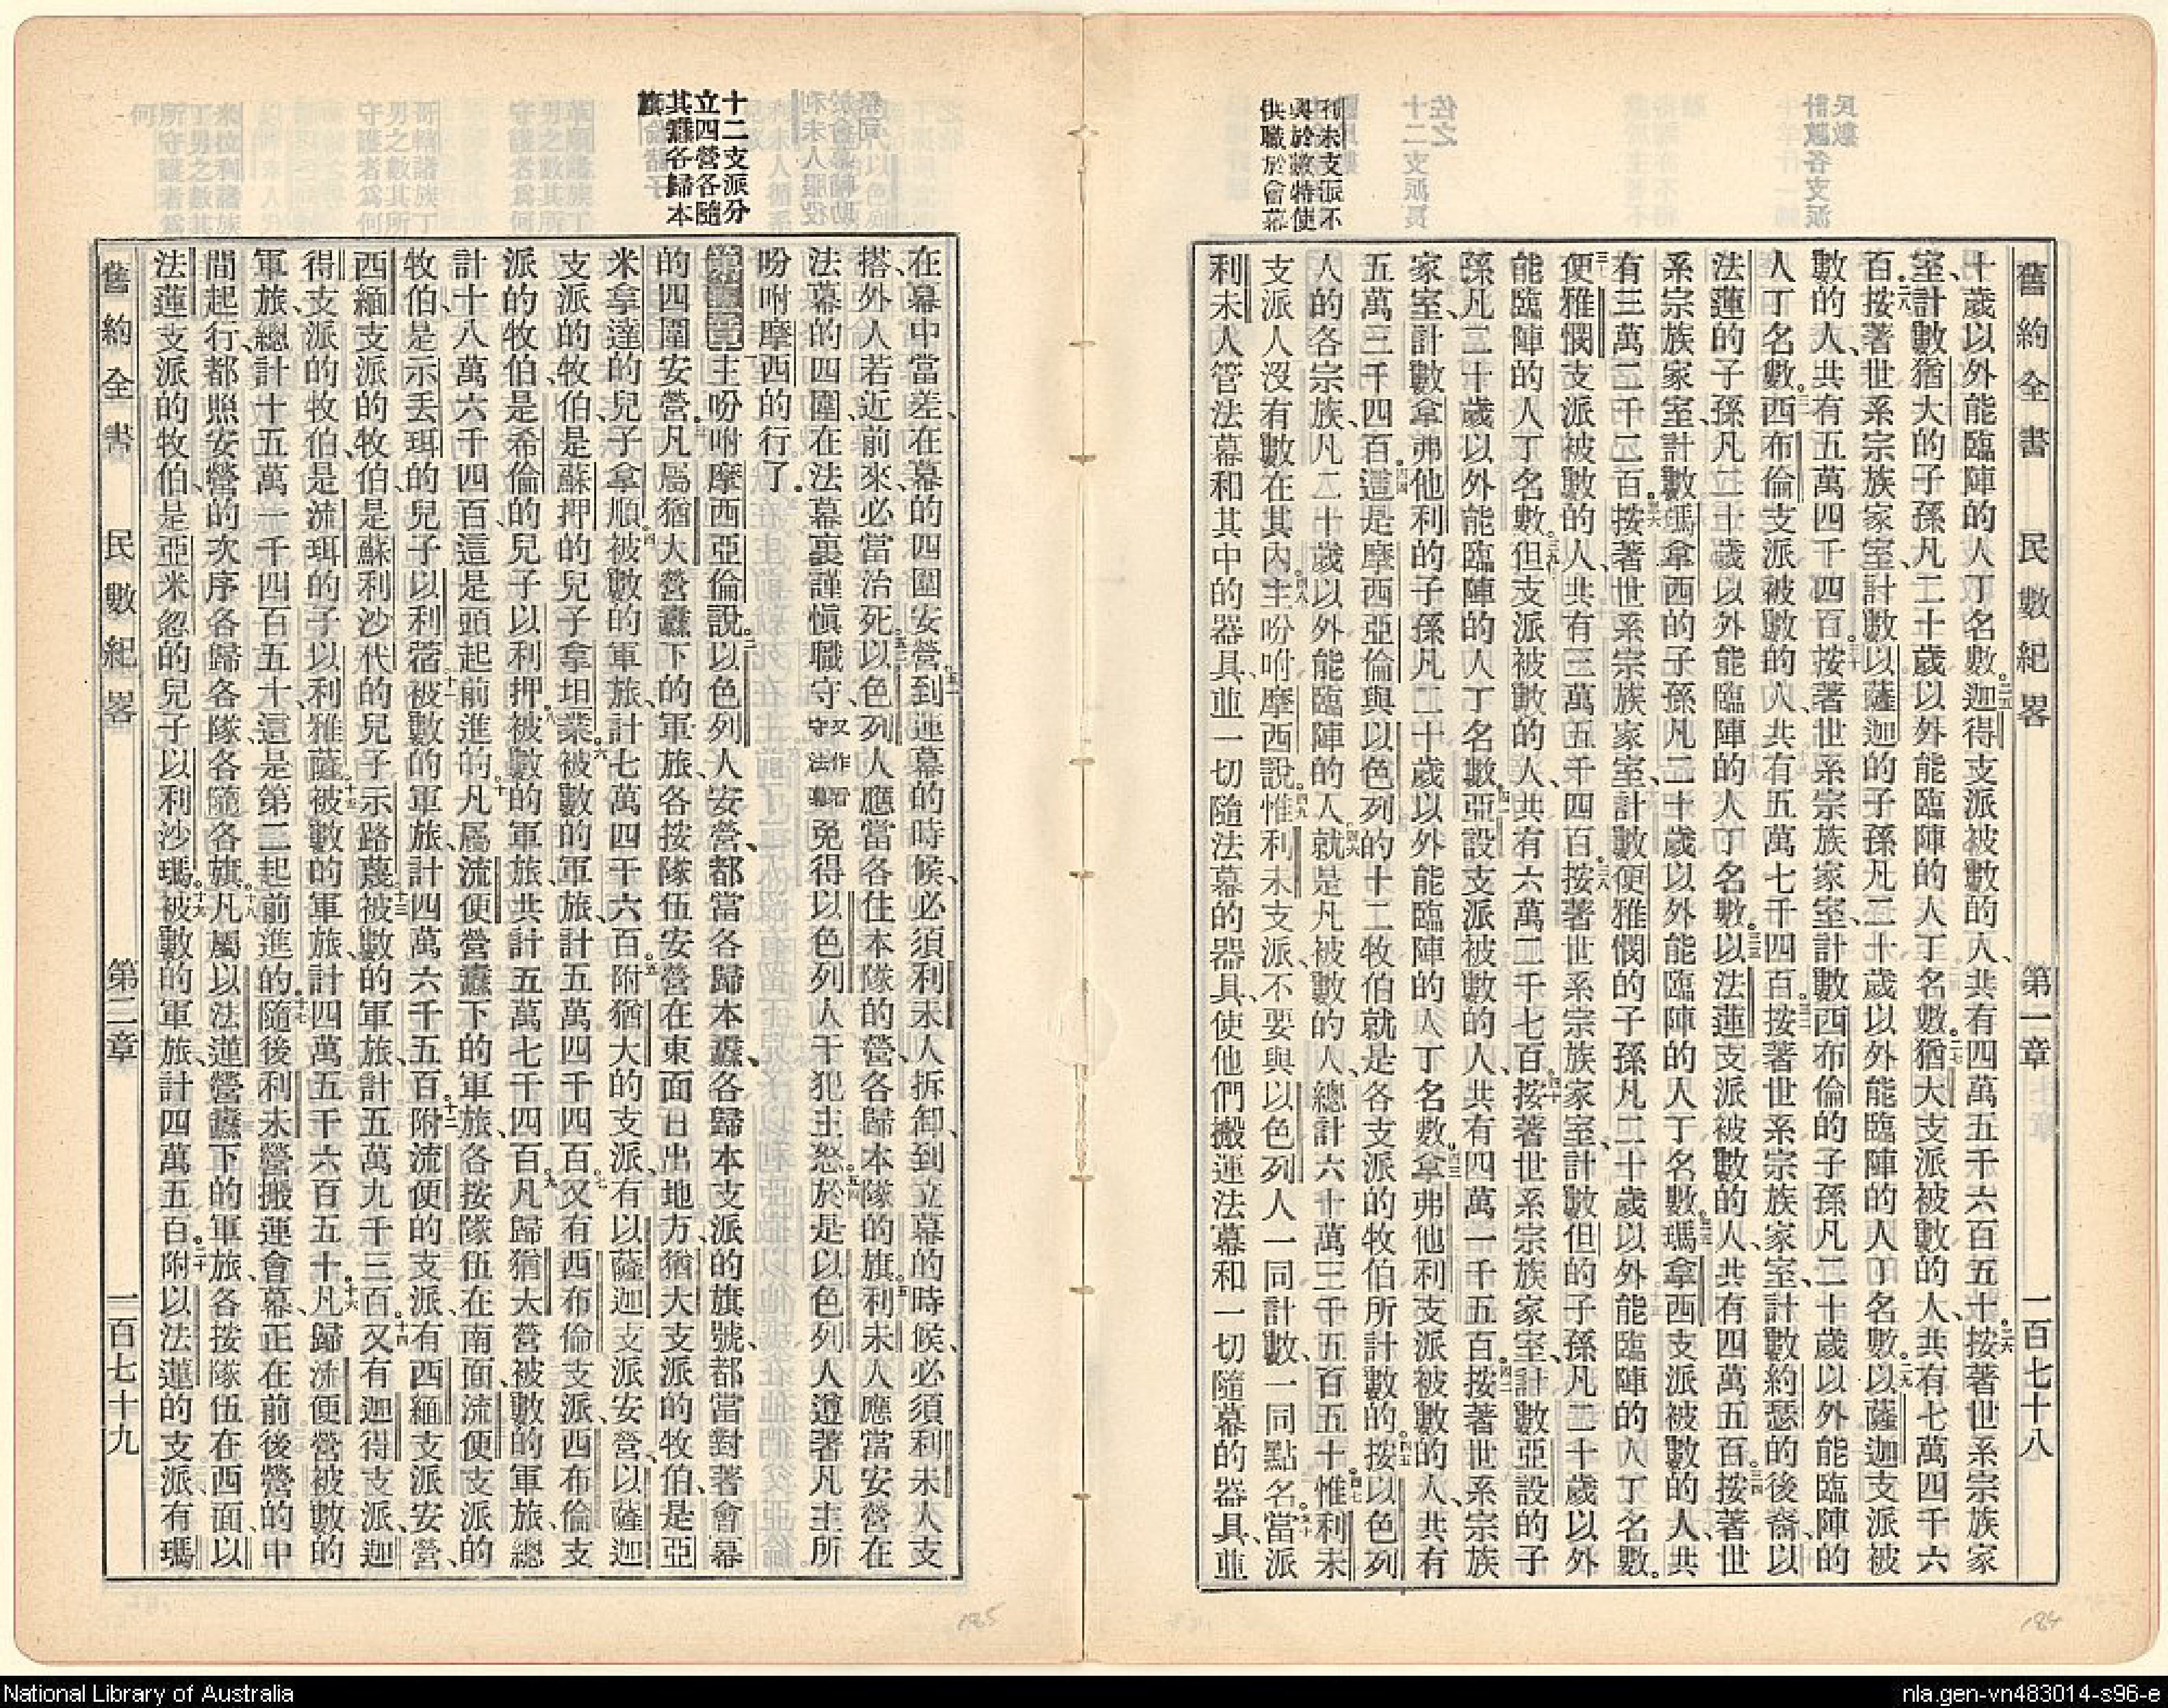 舊約全書 民數紀畧 第一章 一百七十八
利未支派不
與於數特使
供職於會幕
十歲以外能臨陣的人丁名數二五迦得支派被數的人、共有四萬五千六百五十。二六按著世系宗族家
室、計數猶大的子孫凡二十歲以外能臨陣的人丁名數二七猶大支派被數的人、共有七萬四千六
百。二八按著世系宗族家室、計數以薩迦的子孫凡二十歲以外能臨陣的人丁名數。二九以薩迦支派被
數的人、共有五萬四千四百。三十按著世系宗族家室、計數西布倫的子孫凡二十歲以外能臨陣的
人丁名數。三一西布倫支派被數的人、共有五萬七千四百。三二按著世系宗族家室、計數約瑟的後裔、以
法蓮的子孫凡二十歲以外能臨陣的人丁名數。三三以法蓮支派被數的人、共有四萬五百。三四按著世
系宗族家室、計數瑪拿西的子孫凡二十歲以外能臨陣的人丁名數。三五瑪拿西支派被數的人、共
有三萬二千二百。三六按著世系宗族家室、計數便雅憫的子孫凡二十歲以外能臨陣的人丁名數。
三七便雅憫支派被數的人、共有三萬五千四百。三八按著世系宗族家室、計數但的子孫凡二十歲以外
能臨陣的人丁名數。三九但支派被數的人、共有六萬二千七百。四十按著世系宗族家室、計數亞設的子
孫凡二十歲以外能臨陣的人丁名數四一亞設支派被數的人、共有四萬一千五百。四二按著世系宗族
家室、計數拿弗他利的子孫凡二十歲以外能臨陣的人丁名數。四三拿弗他利支派被數的人、共有
五萬三千四百。四四這是摩西亞倫與以色列的十二牧伯就是各支派的牧伯所計數的。四五按以色列
人的各宗族、凡二十歲以外能臨陣的人四六就是凡被數的人、總計六十萬三千五百五十。四七惟利未
支派人沒有數在其內。四八主吩咐摩西說。四九惟利未支派、不要與以色列人一同計數、一同點名。五十當派
利未人管法幕和其中的器具、並一切隨法幕的器具、使他們搬運法幕和一切隨幕的器具、並
十二支派分
立四營各隨
其纛各歸本
旗
在幕中當差、在幕的四圍安營五一到運幕的時候、必須利未人拆卸、到立幕的時候、必須利未人支
搭、外人若近前來、必當治死。五二以色列人應當各住本隊的營、各歸本隊的旗。五三利未人應當安營在
法幕的四圍、在法幕裏謹愼職守、又作看守法幕免得以色列人干犯主怒。五四於是以色列人遵著凡主所
吩咐摩西的行了。
第二章一主吩咐摩西亞倫說。二以色列人安營、都當各歸本纛、各歸本支派的旗號、都當對著會幕
的四圍安營。三凡屬猶大營纛下的軍旅、各按隊伍安營在東面日出地方猶大支派的牧伯、是亞
米拿達的兒子拿順四被數的軍旅、計七萬四千六百。五附猶大的支派、有以薩迦支派安營、以薩迦
支派的牧伯、是蘇押的兒子拿坦業。六被數的軍旅、計五萬四千四百。七又有西布倫支派、西布倫支
派的牧伯是希倫的兒子以利押八被數的軍旅、共計五萬七千四百。九凡歸猶大營被數的軍旅、總
計十八萬六千四百、這是頭起前進的。十凡屬流便營纛下的軍旅、各按隊伍在南面、流便支派的
牧伯、是示丟珥的兒子以利蓿十一被數的軍旅、計四萬六千五百。十二附流便的支派、有西緬支派安營、
西緬支派的牧伯、是蘇利沙代的兒子示路蔑十三被數的軍旅、計五萬九千三百。十四又有迦得支派、迦
得支派的牧伯、是流珥的子以利雅薩十五被數的軍旅、計四萬五千六百五十。十六凡歸流便營被數的
軍旅、總計十五萬一千四百五十、這是第二起前進的。十七隨後利未營搬運會幕、正在前後營的中
間起行、都照安營的次序各歸各隊、各隨各旗。十八凡屬以法蓮營纛下的軍旅、各按隊伍在西面、以
法蓮支派的牧伯、是亞米忽的兒子以利沙瑪十九被數的軍旅、計四萬五百。二十附以法蓮的支派有瑪
舊約全書 民數紀畧 第二章 一百七十九
184
185
National Library of Australia
nla.gen-vn483014-s96-e